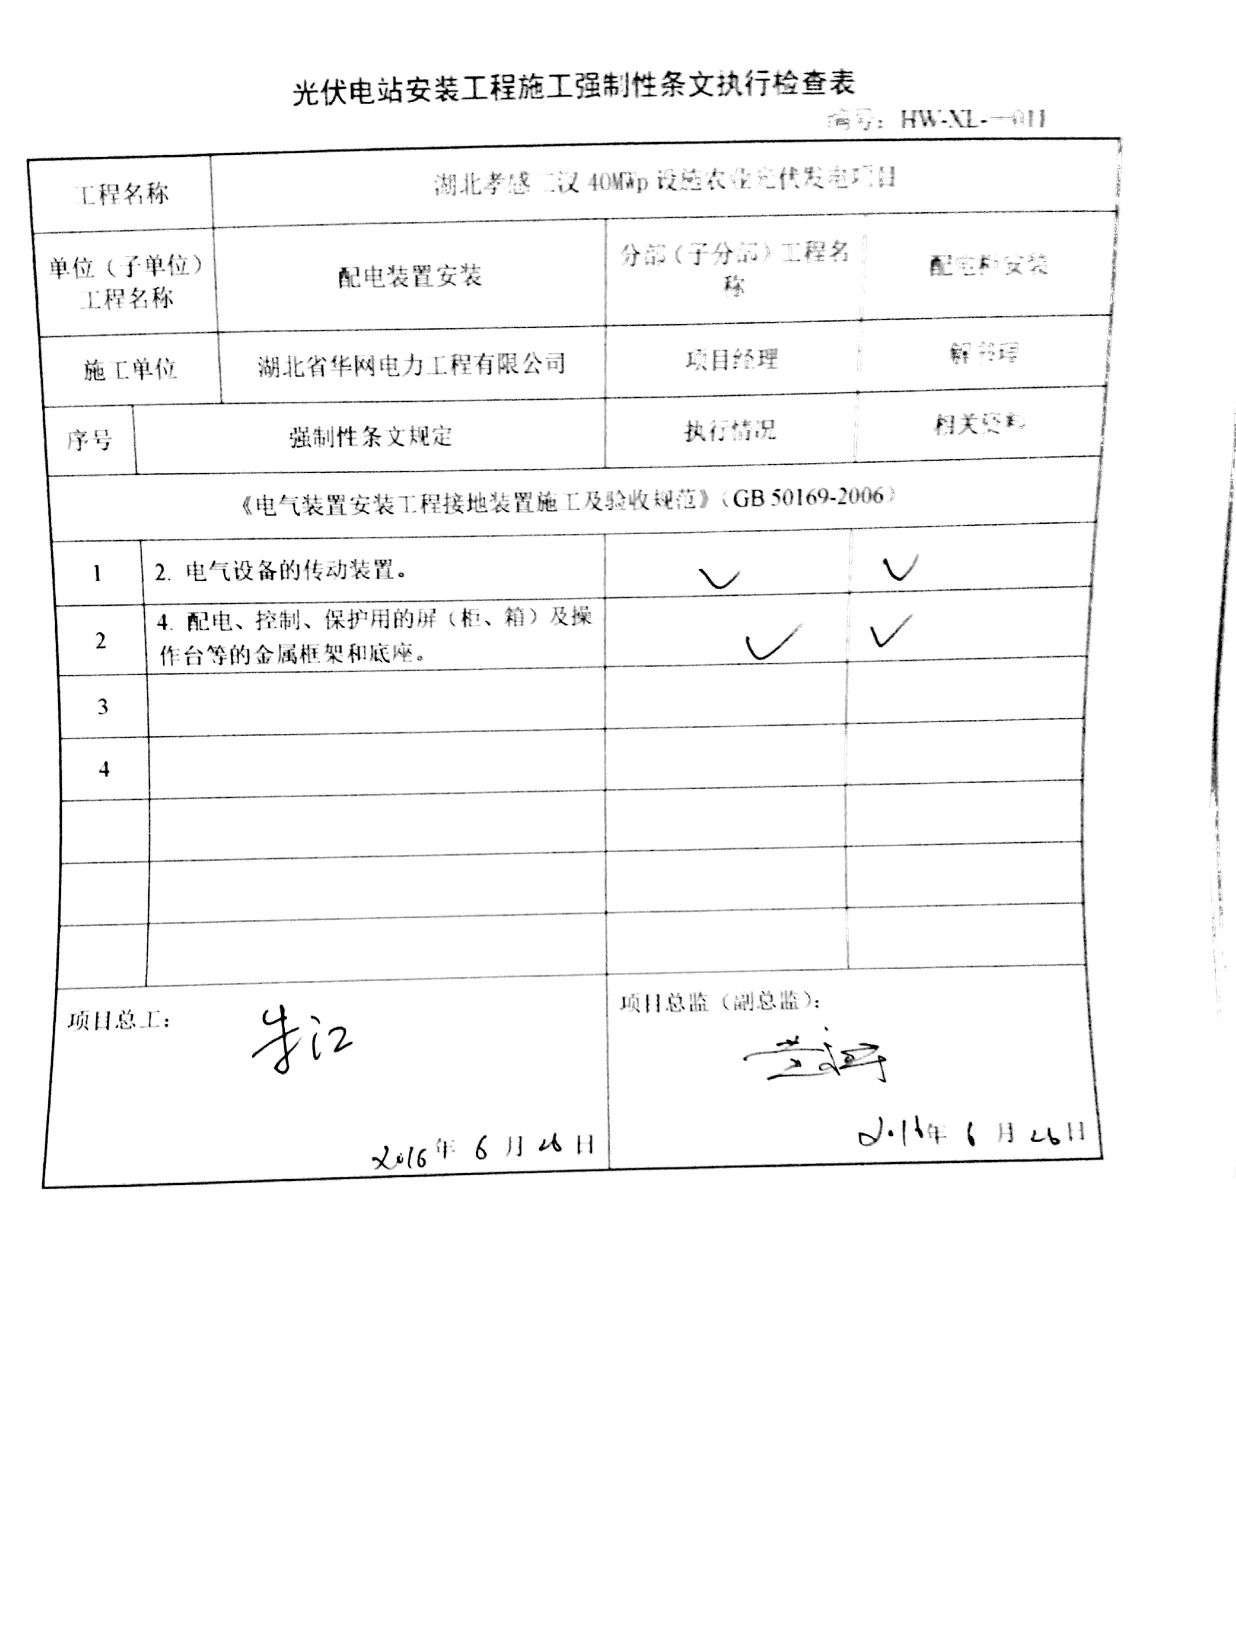 光伏电站安装工程施工强制性条文执行检查表
编号：HW-XL-一011
工程名称
湖北孝感二汉 40MWp 设施农业光伏发电项目
单位（子单位）
工程名称
配电装置安装
分部（子分部）工程名
称
配电柜安装
施工单位
湖北省华网电力工程有限公司
项目经理
序号
强制性条文规定
执行情况
相关资料
《电气装置安装工程接地装置施工及验收规范》（GB 50169-2006）
1
2. 电气设备的传动装置。
✓
✓
2
4. 配电、控制、保护用的屏（柜、箱）及操
作台等的金属框架和底座。
✓
✓
3
4
项目总工：
朱江
2016年 6 月 26 日
项目总监（副总监）：
2016年 6 月 26 日